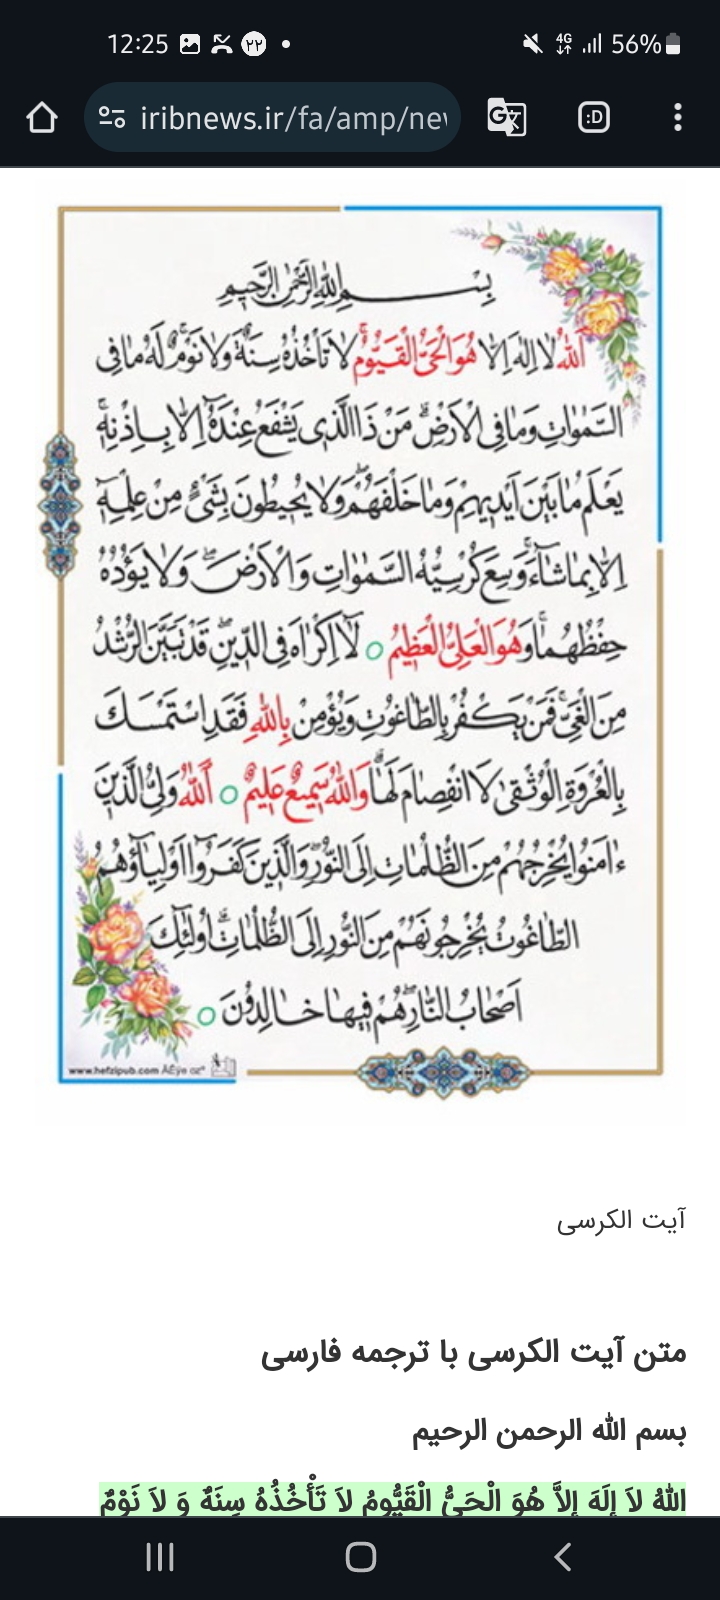 12:25
۲۲
4G
56%
iribnews.ir/fa/amp/nev
:D
بِسْمِ اللهِ الرَّحْمٰنِ الرَّحيمِ
اَللهُ لا اِلٰهَ اِلّا هُوَ الْحَىُّ الْقَيُّومُ لا تَأْخُذُهُ سِنَةٌ وَلا نَوْمٌ لَهُ مٰا فِى
السَّمٰوٰاتِ وَمٰا فِى الْاَرْضِ مَنْ ذَا الَّذى يَشْفَعُ عِنْدَهُ اِلّا بِاِذْنِهِ
يَعْلَمُ مٰا بَيْنَ اَيْديهِمْ وَمٰا خَلْفَهُمْ وَلا يُحيطُونَ بِشَىْءٍ مِنْ عِلْمِهِ
اِلّا بِمٰا شٰاءَ وَسِعَ كُرْسِيُّهُ السَّمٰوٰاتِ وَالْاَرْضَ وَلا يَؤُدُهُ
حِفْظُهُمٰا وَهُوَ الْعَلِىُّ الْعَظيمُ لا اِكْرٰاهَ فِى الدّينِ قَدْ تَبَيَّنَ الرُّشْدُ
مِنَ الْغَىِّ فَمَنْ يَكْفُرْ بِالطّٰاغُوتِ وَيُؤْمِنْ بِاللهِ فَقَدِ اسْتَمْسَكَ
بِالْعُرْوَةِ الْوُثْقىٰ لَا انْفِصٰامَ لَهٰا وَاللهُ سَميعٌ عَليمٌ اَللهُ وَلِىُّ الَّذينَ
ءٰامَنُوا يُخْرِجُهُمْ مِنَ الظُّلُمٰاتِ اِلَى النُّورِ وَالَّذينَ كَفَرُوا اَوْلِيٰاؤُهُمُ
الطّٰاغُوتُ يُخْرِجُونَهُمْ مِنَ النُّورِ اِلَى الظُّلُمٰاتِ اُولٰئِكَ
اَصْحٰابُ النّٰارِ هُمْ فيهٰا خٰالِدُونَ
www.hefzipub.com
آیت الکرسی
متن آیت الکرسی با ترجمه فارسی
بسم الله الرحمن الرحیم
اللّهُ لاَ إِلَهَ إِلاَّ هُوَ الْحَيُّ الْقَيُّومُ لاَ تَأْخُذُهُ سِنَةٌ وَ لاَ نَوْمٌ